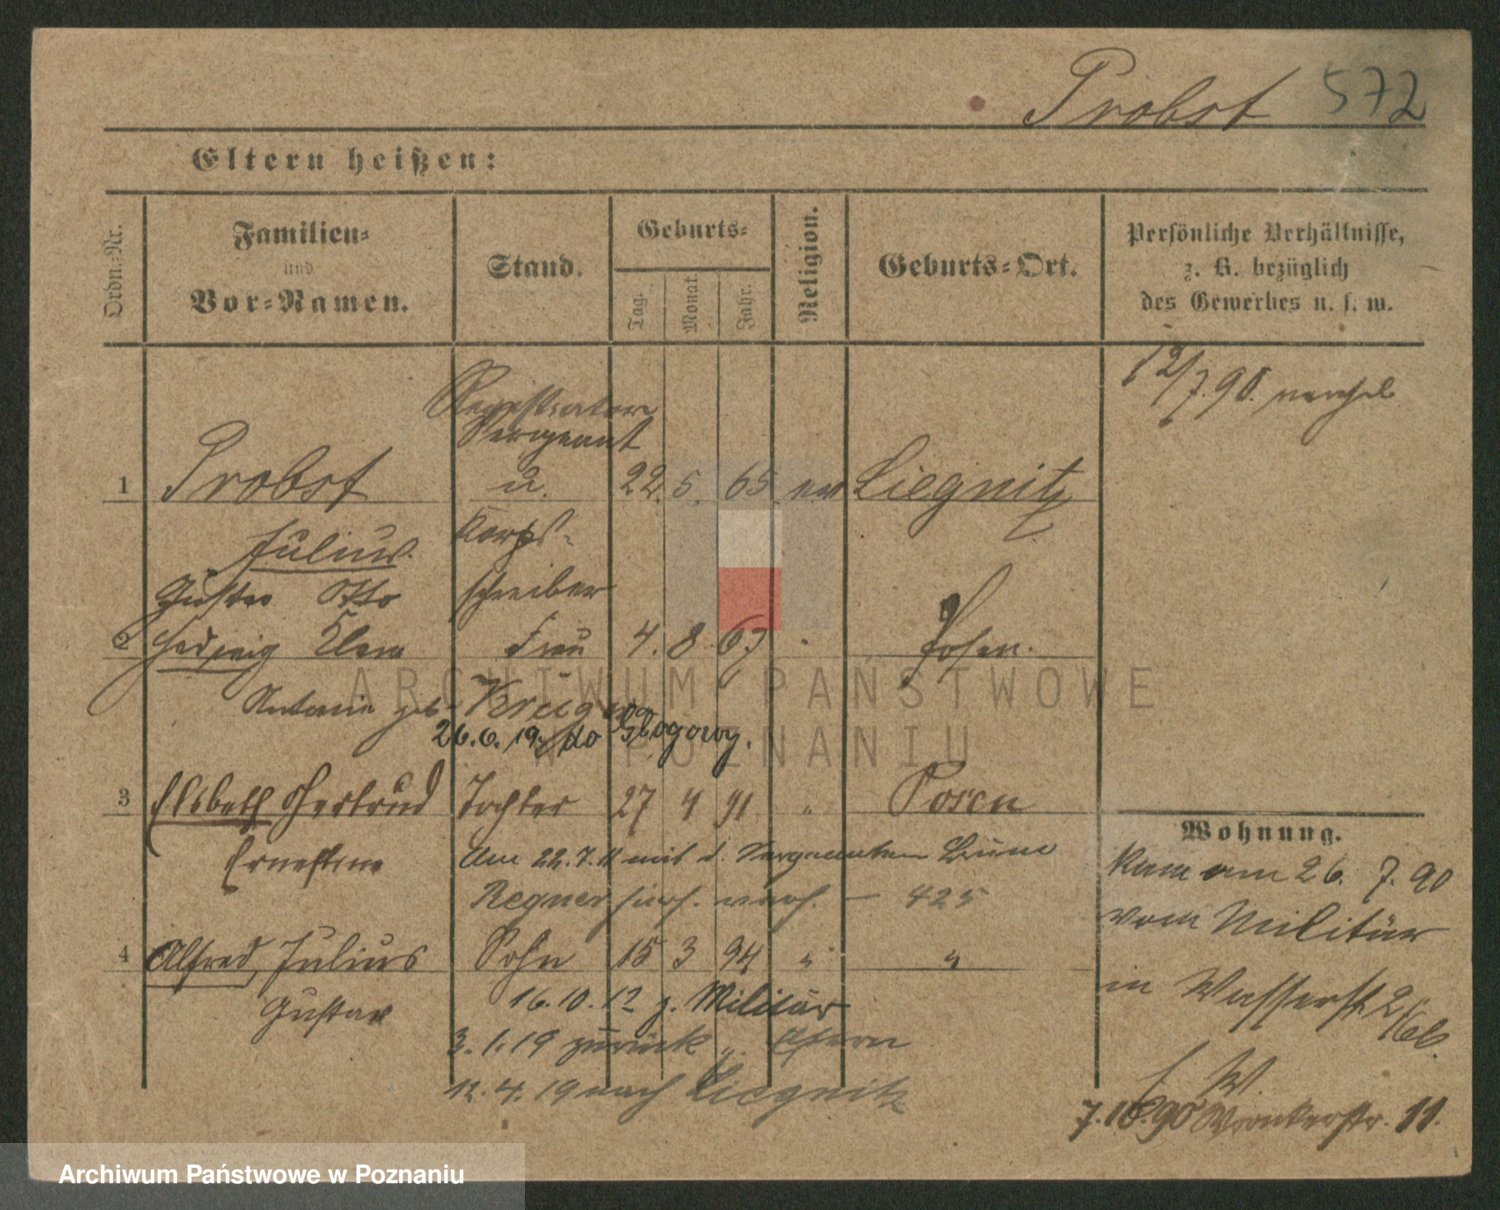 Probst 572
Eltern heißen:
Ordn.-Nr.
Familien-
und
Vor-Namen.
Stand.
Geburts-
Tag.
Monat.
Jahr.
Religion.
Geburts-Ort.
Persönliche Verhältnisse,
z. B. bezüglich
des Gewerbes u. s. w.
12/7.90.
Registrator
Sergeant
1 Probst u. 22. 5. 65 ev Liegnitz
Julius Korps-
Gustav Otto schreiber
2 Hedwig Klara Frau 4. 8. 67 " Posen.
Antonie geb. Krüger
26.6.19. do Głogowy.
3 Elsbeth Gertrud Tochter 27 4 91 " Posen
Ernestine
Am 22.7.11 mit d.
Regner verh. — 425
4 Alfred, Julius Sohn 15 3 94 " "
Gustav
16.10.12 z. Militär
3.1.19 zurück z. Eltern
12.4.19 nach Liegnitz
Wohnung.
Kam am 26. 7. 90
vom Militär
in Wasserstr 2/6b.
7.10.90 Wronkerstr. 11.
ARCHIWUM PAŃSTWOWE
W POZNANIU
Archiwum Państwowe w Poznaniu